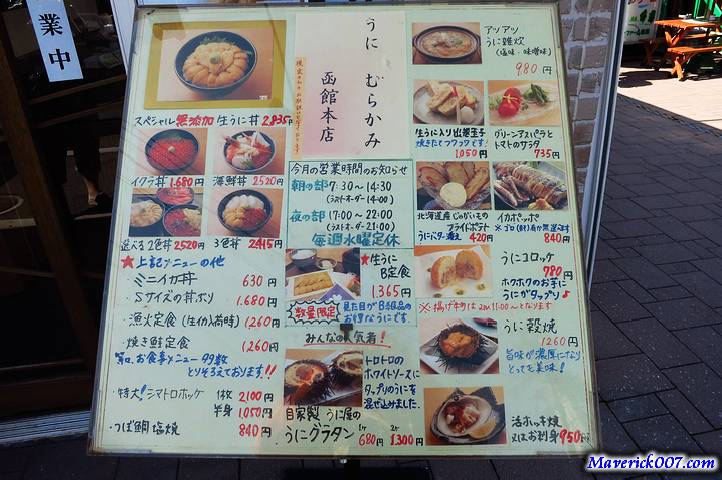 業中
うに むらかみ
函館本店
スペシャル無添加生うに丼 2,835円
イクラ丼 1,680円
海鮮丼 2520円
選べる2色丼 2520円
3色丼 2415円
★上記メニューの他
・ミニイカ丼 630円
・Sサイズの丼ぶり 1,680円
・漁火定食(生イカ入荷時) 1,260円
・焼き鮭定食 1,260円
等、お食事メニュー多数
とりそろえております!!
・特大!シマトロホッケ 1枚 2,100円
半身 1,050円
・つぼ鯛塩焼 840円
今月の営業時間のお知らせ
朝の部 7:30～14:30
(ラストオーダー 14:00)
夜の部 17:00～22:00
(ラストオーダー 21:00)
毎週水曜定休
★生うに
B定食
1,365円
数量限定
見た目がB級品の
お得なうにです.
みんなの人気者!
トロトロの
ホワイトソースに
タップリのうにを
混ぜ込みました.
自家製 うに屋の
うにグラタン 1ヶ 680円 2ヶ 1300円
アツアツ
うに雑炊
(塩味・味噌味)
980円
生うに入り出巻玉子
焼きたてフワッフワです!
1,050円
グリーンアスパラと
トマトのサラダ
735円
北海道産じゃがいもの
フライドポテト
うにバター添え 420円
イカポッポ
※ゴロ(肝)有か無選べます
840円
うにコロッケ
780円
ホクホクのお芋に
うにがタップリ♪
※揚げ物はam11:00～となります
うに殻焼
1260円
旨味が濃厚になり
とっても美味!
活ホッキ焼
又はお刺身 950円
Maverick007.com